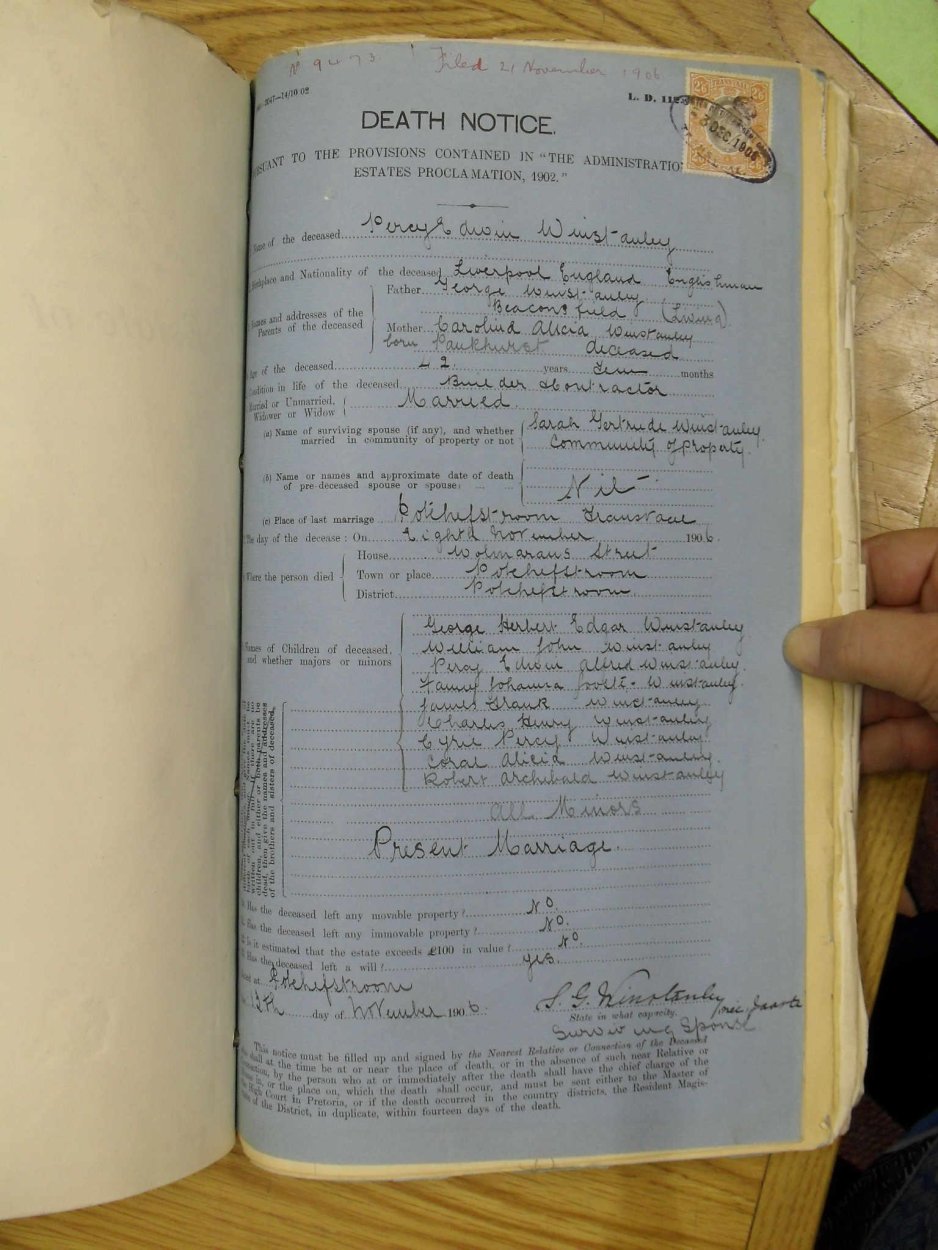 No 9473. Filed 21 November 1906
2047—14/10 02
L. D. 112
TRANSVAAL
2/6 2/6
- 3 DEC. 1906
DEATH NOTICE.
PURSUANT TO THE PROVISIONS CONTAINED IN "THE ADMINISTRATION
ESTATES PROCLAMATION, 1902."
Name of the deceased Percy Edwin Winstanley
Birthplace and Nationality of the deceased Liverpool England Englishman
Names and addresses of the Parents of the deceased
Father George Winstanley
Beaconsfield (Living)
Mother Caroline Alicia Winstanley
born Pankhurst deceased
Age of the deceased 42 years Ten months
Condition in life of the deceased Builder & Contractor
Married or Unmarried, Widower or Widow Married
(a) Name of surviving spouse (if any), and whether Sarah Gertrude Winstanley
married in community of property or not Community of Property.
(b) Name or names and approximate date of death
of pre-deceased spouse or spouse: Nil
(c) Place of last marriage Potchefstroom Transvaal
The day of the decease: On Eighth November 1906.
Where the person died
House Wolmarans Street
Town or place Potchefstroom
District Potchefstroom
Names of Children of deceased,
and whether majors or minors
George Herbert Edgar Winstanley
William John Winstanley
Percy Edwin Alfred Winstanley
Fanny Johanna Winstanley.
James Frank Winstanley.
Charles Henry Winstanley
Cyril Percy Winstanley
Coral Alicia Winstanley.
Robert Archibald Winstanley
All Minors
Present Marriage.
children, and either or both parents be
dead, then give the names and addresses
of the brothers and sisters of deceased.
Has the deceased left any movable property? No.
Has the deceased left any immovable property? No.
Is it estimated that the estate exceeds £100 in value? No.
Has the deceased left a will? yes.
Dated at Potchefstroom
13th day of November 1906.
S. G. Winstanley
State in what capacity.
Surviving Spouse
This notice must be filled up and signed by the Nearest Relative or Connection of the Deceased
who shall at the time be at or near the place of death, or in the absence of such near Relative or
Connection, by the person who at or immediately after the death shall have the chief charge of the
house in, or the place on, which the death shall occur, and must be sent either to the Master of
the High Court in Pretoria, or if the death occurred in the country districts, the Resident Magis-
trate of the District, in duplicate, within fourteen days of the death.